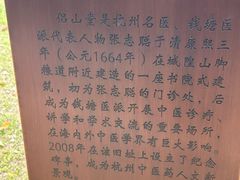 侣山堂是杭州名医、钱塘医
派代表人物张志聪于清康熙三
年（公元1664年）在城隍山脚
粮道附近建造的一座书院式建
筑，初为张志聪的门诊处，后
成为钱塘医派开展中医诊疗、
讲学和学术交流的重要场所，
在海内外中医学界有巨大影响。
2008年在该旧址上设立了纪念
碑亭，成为杭州中医药人文新
景观。